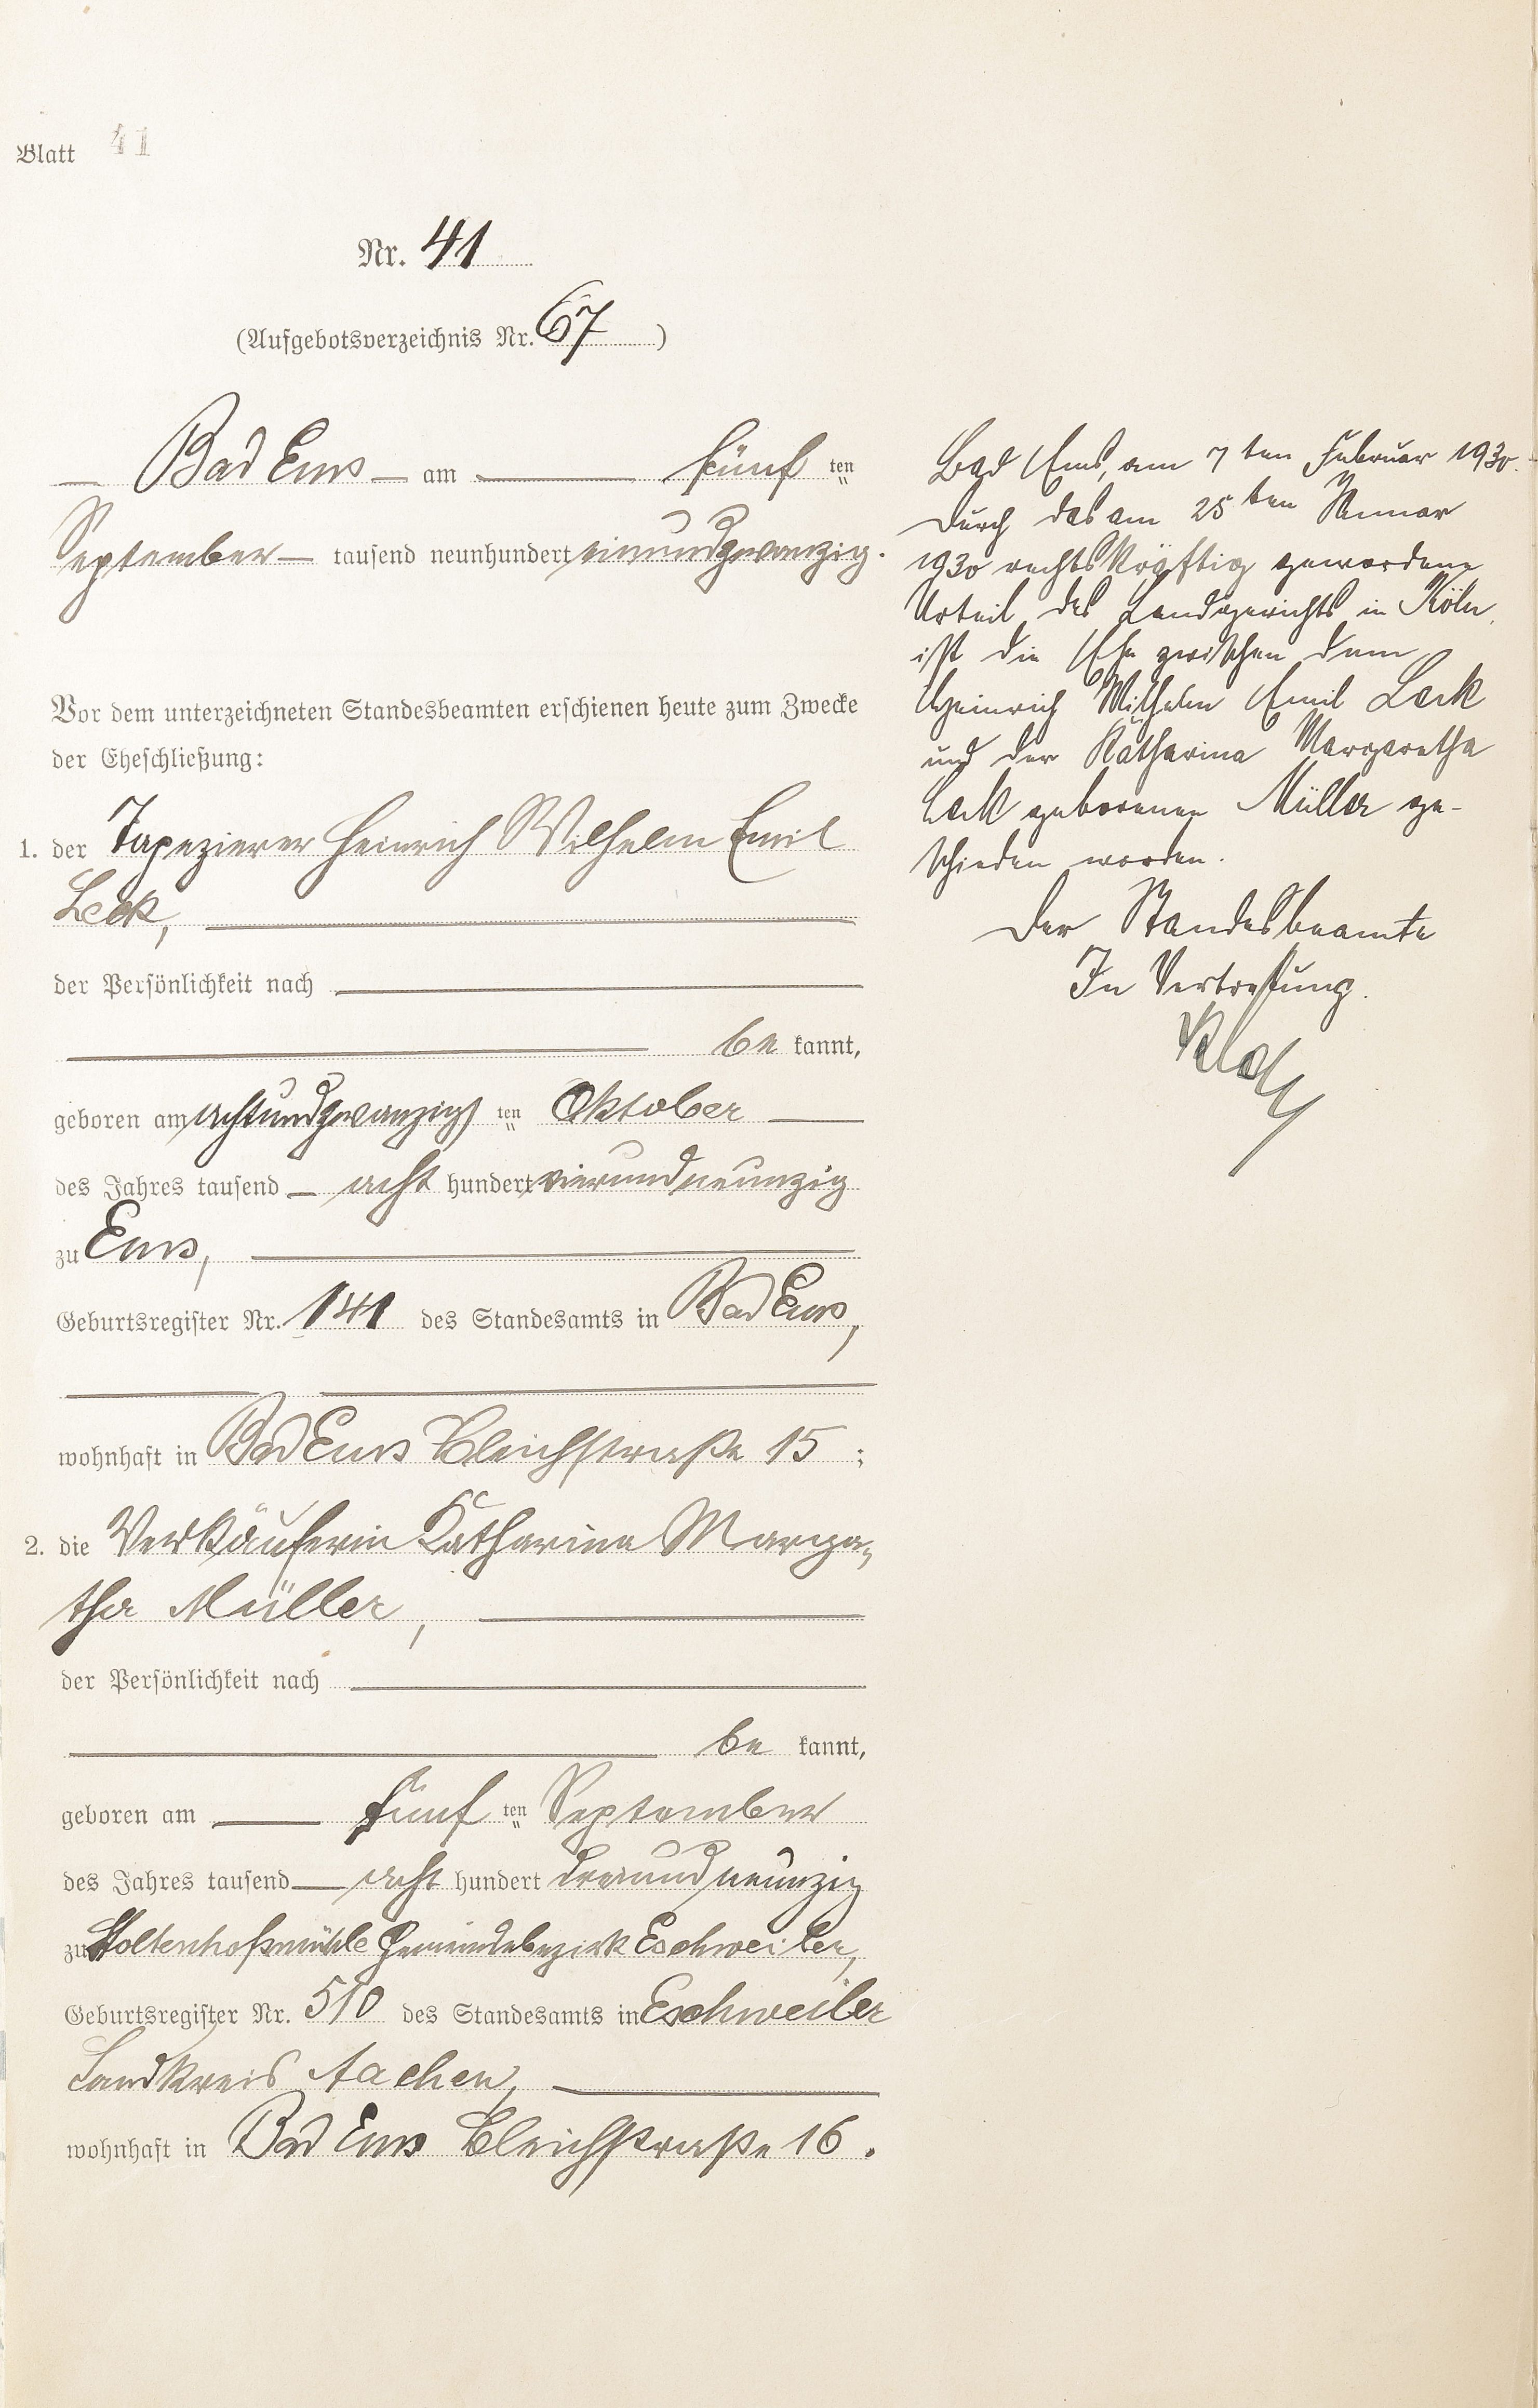 Blatt 41
Nr. 41
(Aufgebotsverzeichnis Nr. 67)
Bad Ems am fünf ten
September tausend neunhundert einundzwanzig.
Vor dem unterzeichneten Standesbeamten erschienen heute zum Zwecke
der Eheschließung:
1. der Tapezierer Heinrich Wilhelm Emil
Leck,
der Persönlichkeit nach
be kannt,
geboren am achtundzwanzig ten Oktober
des Jahres tausend acht hundert vierundneunzig
zu Ems,
Geburtsregister Nr. 141 des Standesamts in Bad Ems,
wohnhaft in Bad Ems Bleichstraße 15;
2. die Verkäuferin Katharina Marga-
tha Müller,
der Persönlichkeit nach
be kannt,
geboren am fünf ten September
des Jahres tausend acht hundert dreiundneunzig
zu Gemeindebezirk Eschweiler,
Geburtsregister Nr. 510 des Standesamts in Eschweiler
Landkreis Aachen,
wohnhaft in Bad Ems Bleichstraße 16.
Bad Ems, am 7ten Februar 1930.
Durch das am 25ten Januar
1930 rechtskräftig gewordene
Urteil des Landgerichts in Köln,
ist die Ehe zwischen dem
Heinrich Wilhelm Emil Leck
und der Katharina Margaretha
Leck geborenen Müller ge-
schieden worden.
Der Standesbeamte
In Vertretung.